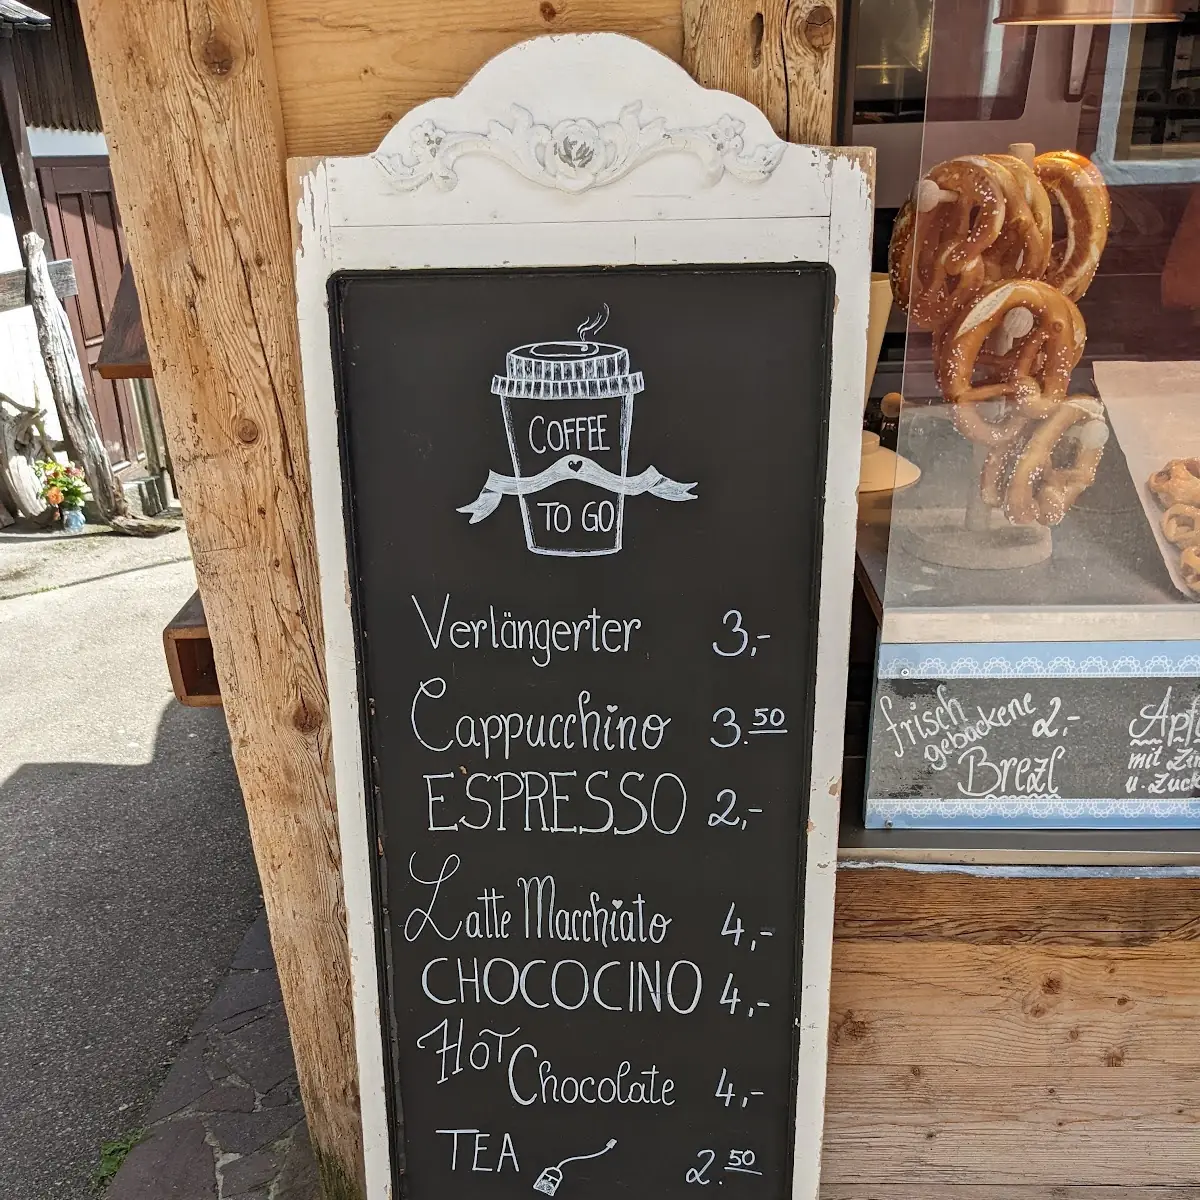 COFFEE
TO GO
Verlängerter 3,-
Cappucchino 3.50
ESPRESSO 2,-
Latte Macchiato 4,-
CHOCOCINO 4,-
Hot Chocolate 4,-
TEA 2.50
frisch
gebackene 2,-
Brezl
mit
u. Zuck